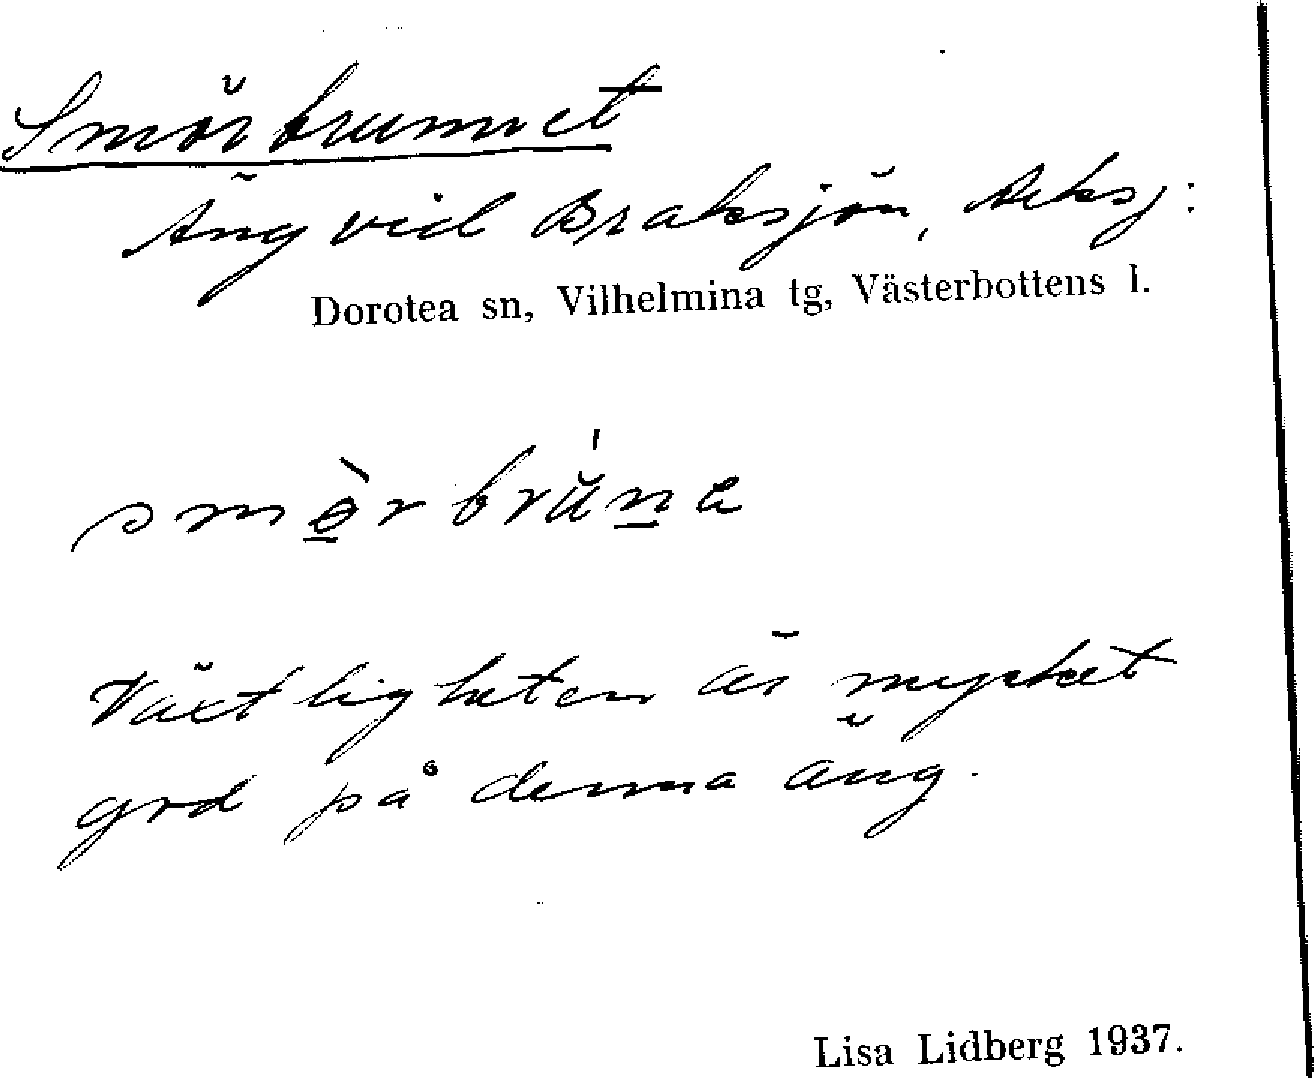 Smörbrunnet
Äng vid Braksjön, Aeksj:
Dorotea sn, Vilhelmina tg, Västerbottens l.
smö̀rbrŭ́na
Växtligheten är mycket
god på denna äng.
Lisa Lidberg 1937.